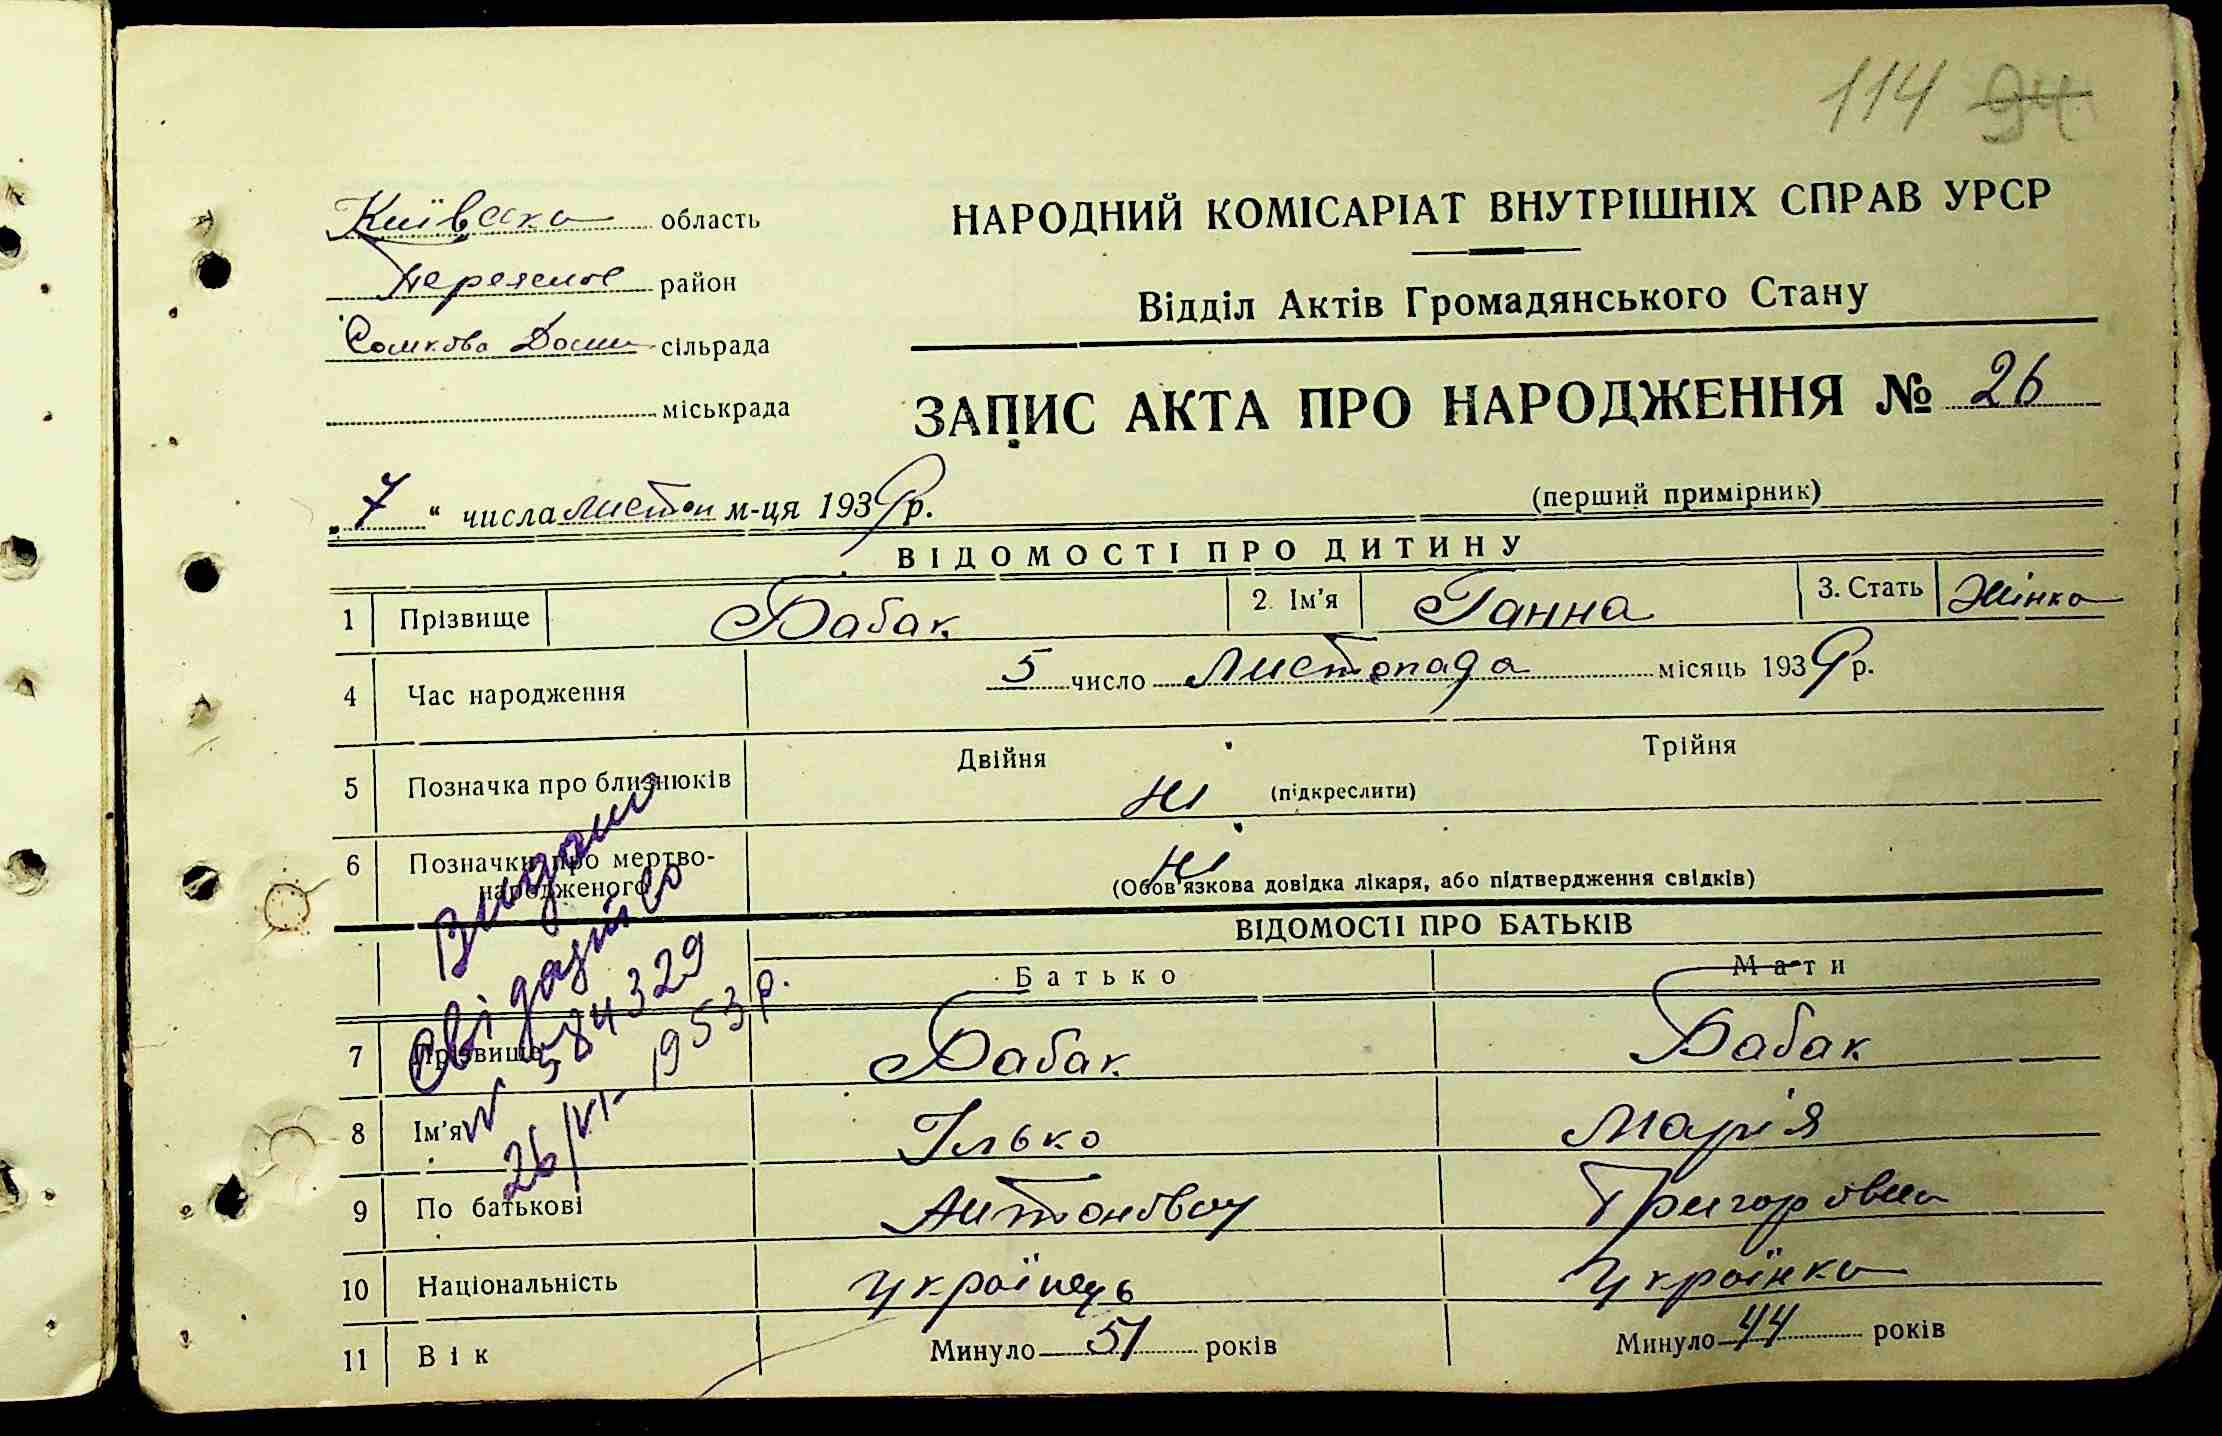 114 94
Київська область
Переяслов район
Сомкова Долин сільрада
міськрада
НАРОДНИЙ КОМІСАРІАТ ВНУТРІШНІХ СПРАВ УРСР
Відділ Актів Громадянського Стану
ЗАПИС АКТА ПРО НАРОДЖЕННЯ № 26
„7“ числа листоп м-ця 1939 р.
(перший примірник)
ВІДОМОСТІ ПРО ДИТИНУ
1 Прізвище Бабак 2. Ім'я Ганна 3. Стать Жінка
4 Час народження 5 число Листопада місяць 1939 р.
5 Позначка про близнюків Двійня ні (підкреслити) Трійня
6 Позначки про мертво-
народженого ні (Обов'язкова довідка лікаря, або підтвердження свідків)
ВІДОМОСТІ ПРО БАТЬКІВ
Батько Мати
7 Прізвище Бабак Бабак
8 Ім'я Ілько Марія
9 По батькові Антонович Григоровна
10 Національність українець українка
11 Вік Минуло 51 років Минуло 44 років
Видано
свідоцтво
№ 584329
26/VI- 1953 р.